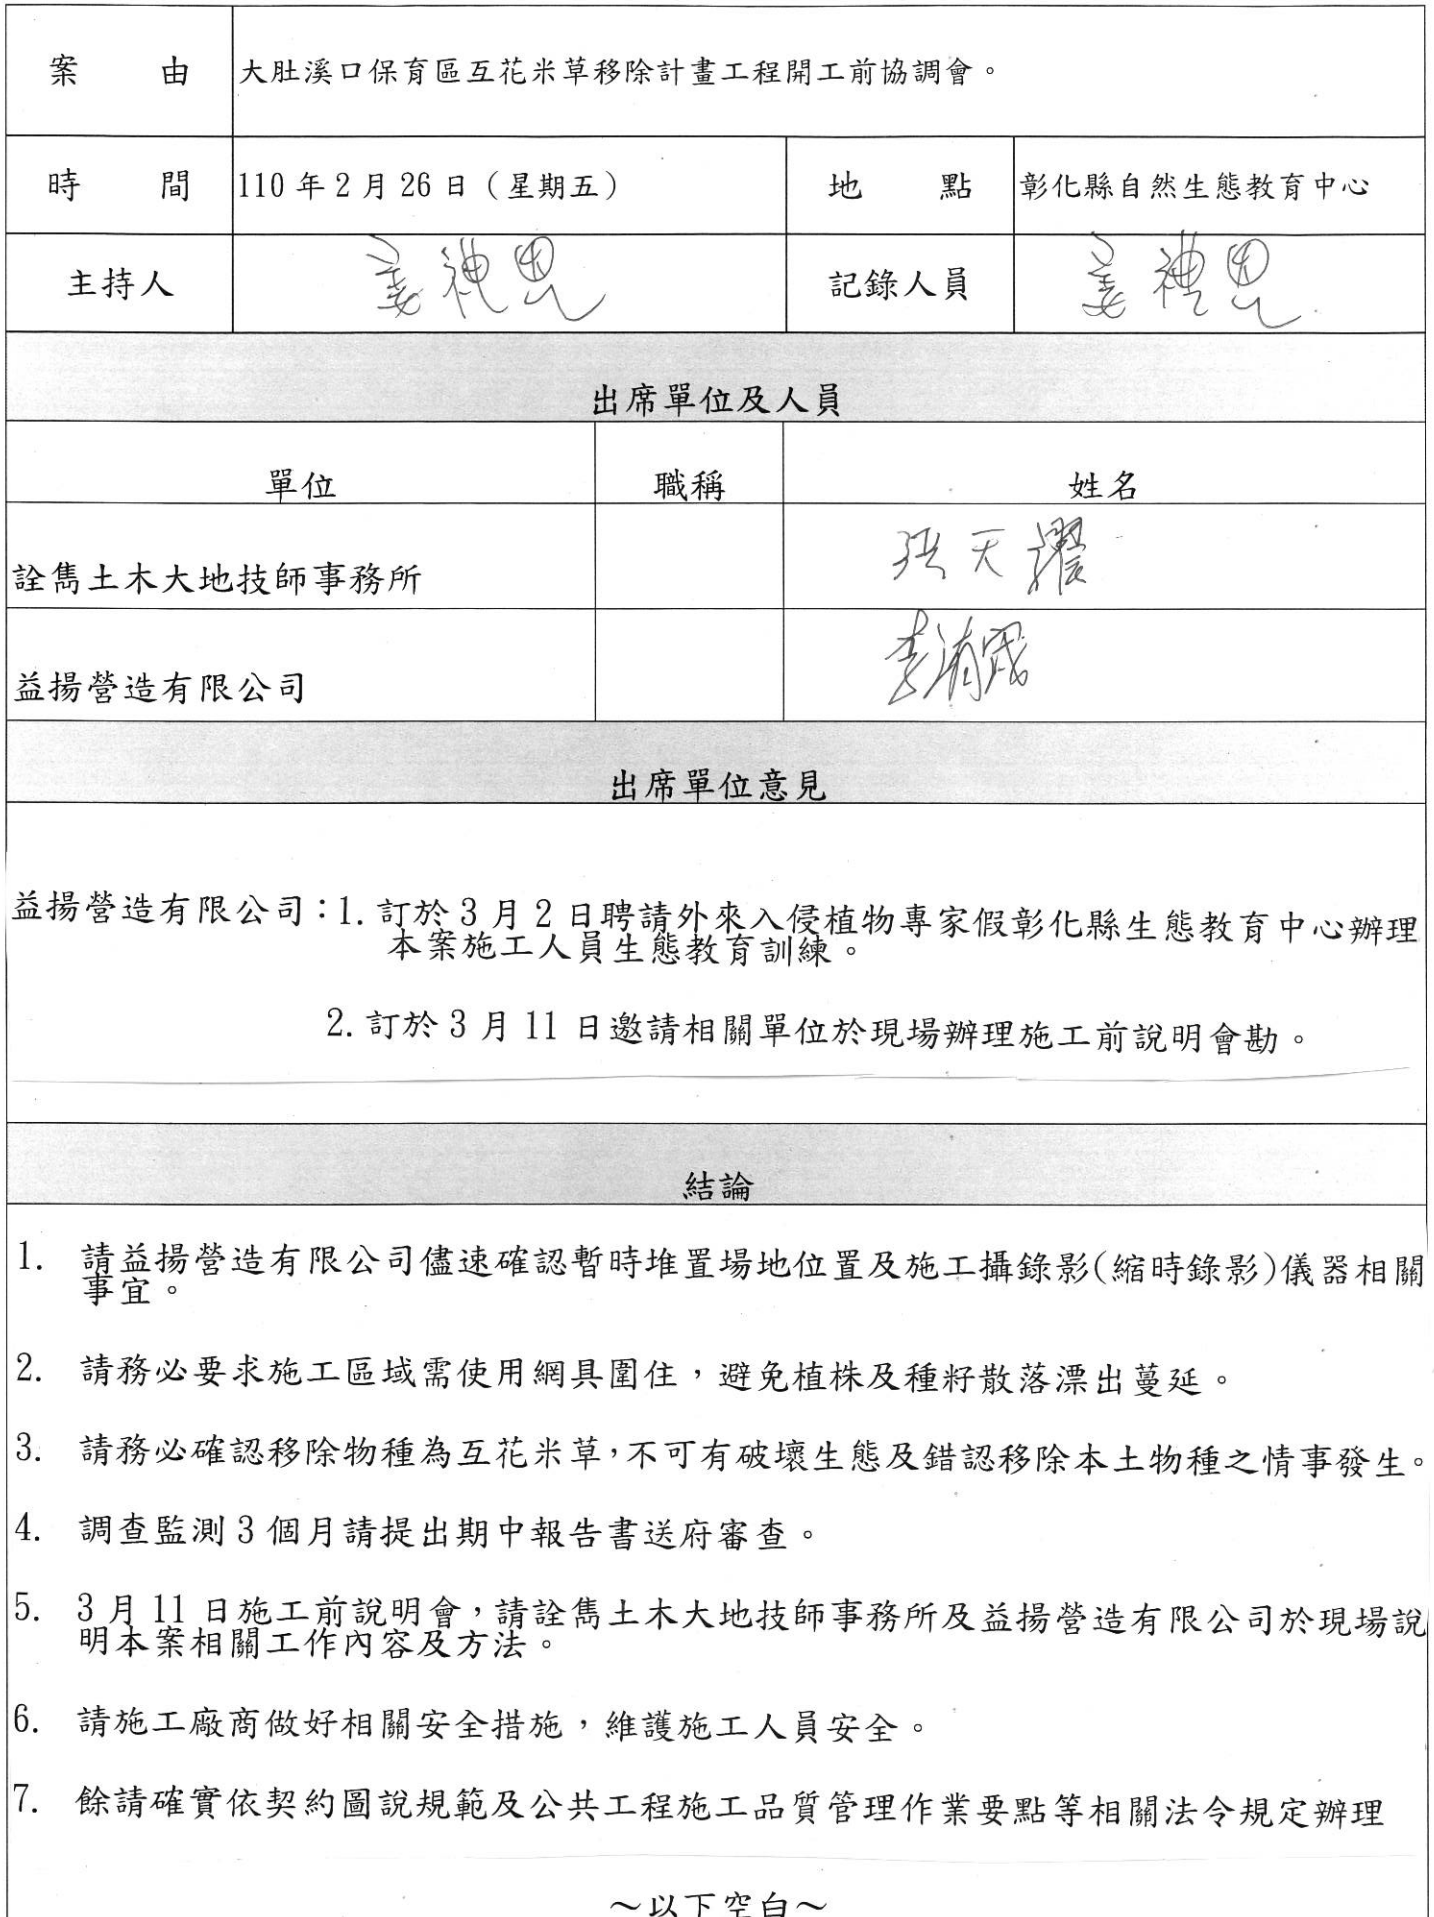 案 由 大肚溪口保育區互花米草移除計畫工程開工前協調會。
時 間 110年2月26日（星期五） 地 點 彰化縣自然生態教育中心
主持人 記錄人員
出席單位及人員
單位 職稱 姓名
詮雋土木大地技師事務所 張天
益揚營造有限公司 李
出席單位意見
益揚營造有限公司：1. 訂於3月2日聘請外來入侵植物專家假彰化縣生態教育中心辦理
本案施工人員生態教育訓練。
2. 訂於3月11日邀請相關單位於現場辦理施工前說明會勘。
結論
1. 請益揚營造有限公司儘速確認暫時堆置場地位置及施工攝錄影(縮時錄影)儀器相關
事宜。
2. 請務必要求施工區域需使用網具圍住，避免植株及種籽散落漂出蔓延。
3. 請務必確認移除物種為互花米草，不可有破壞生態及錯認移除本土物種之情事發生。
4. 調查監測3個月請提出期中報告書送府審查。
5. 3月11日施工前說明會，請詮雋土木大地技師事務所及益揚營造有限公司於現場說
明本案相關工作內容及方法。
6. 請施工廠商做好相關安全措施，維護施工人員安全。
7. 餘請確實依契約圖說規範及公共工程施工品質管理作業要點等相關法令規定辦理
～以下空白～